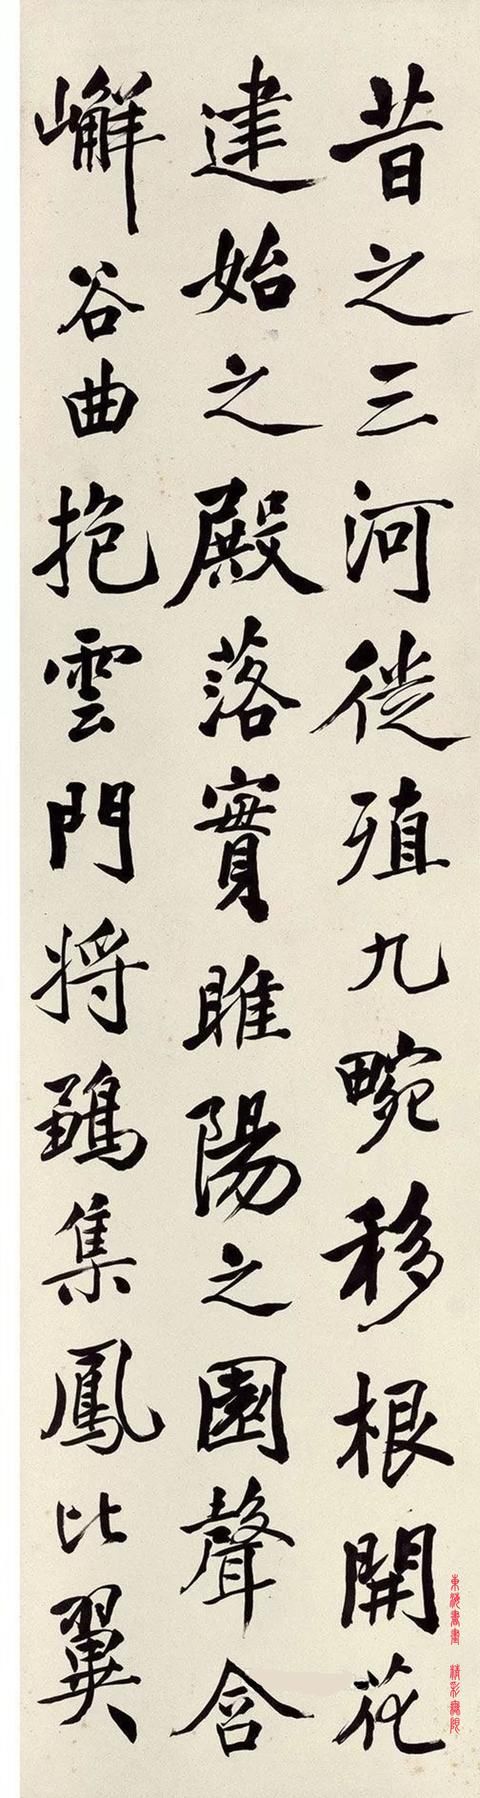 昔之三河徙殖九畹移根開花
建始之殿落實睢陽之園聲含
嶰谷曲抱雲門將鶵集鳳比翼
東海書畫 精彩無限